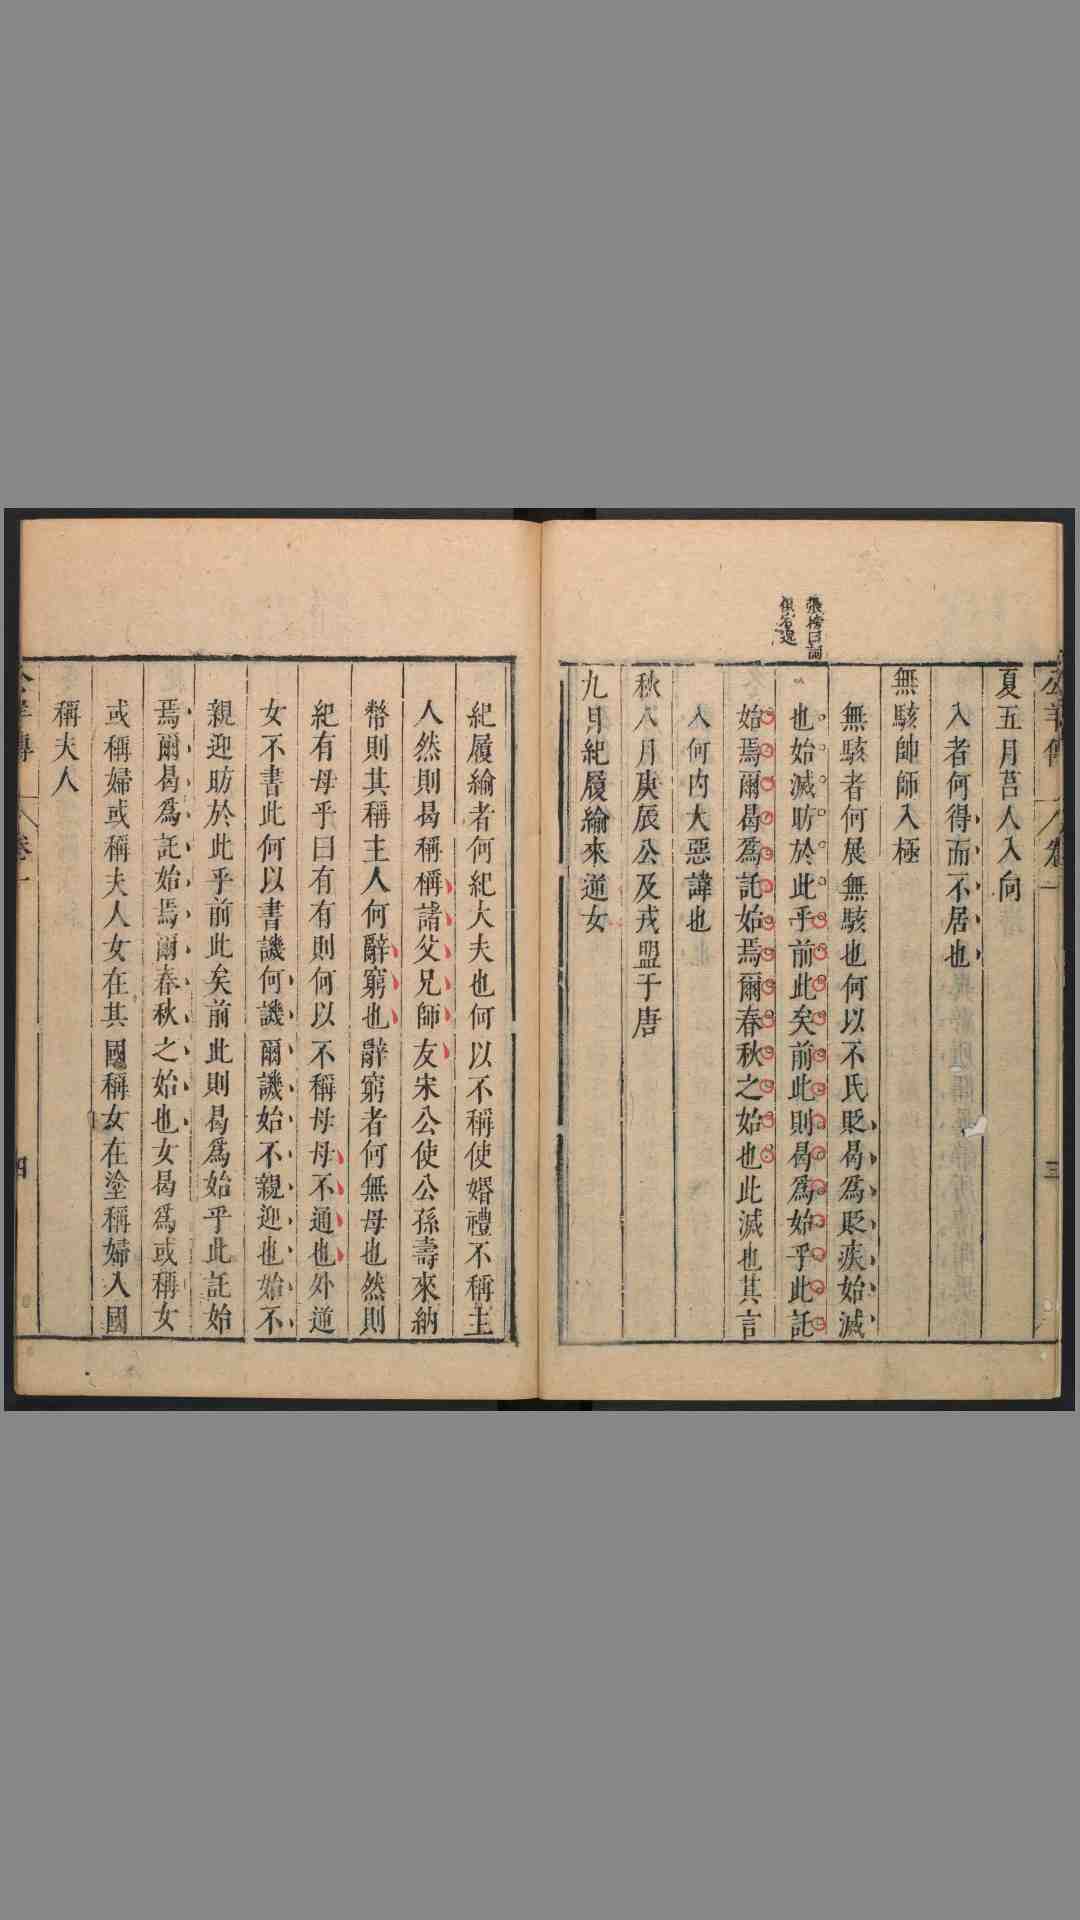 公羊傳
卷一
三
夏五月莒人入向
入者何得而不居也
無駭帥師入極
無駭者何展無駭也何以不氏貶曷爲貶疾始滅
也始滅昉於此乎前此矣前此則曷爲始乎此託
始焉爾曷爲託始焉爾春秋之始也此滅也其言
入何内大惡諱也
秋八月庚辰公及戎盟于唐
九月紀履緰來逆女
張榜曰詞
紀履緰者何紀大夫也何以不稱使婚禮不稱主
人然則曷稱稱諸父兄師友宋公使公孫壽來納
幣則其稱主人何辭窮也辭窮者何無母也然則
紀有母乎曰有有則何以不稱母母不通也外逆
女不書此何以書譏何譏爾譏始不親迎也始不
親迎昉於此乎前此矣前此則曷爲始乎此託始
焉爾曷爲託始焉爾春秋之始也女曷爲或稱女
或稱婦或稱夫人女在其國稱女在塗稱婦入國
稱夫人
公羊傳
卷一
四